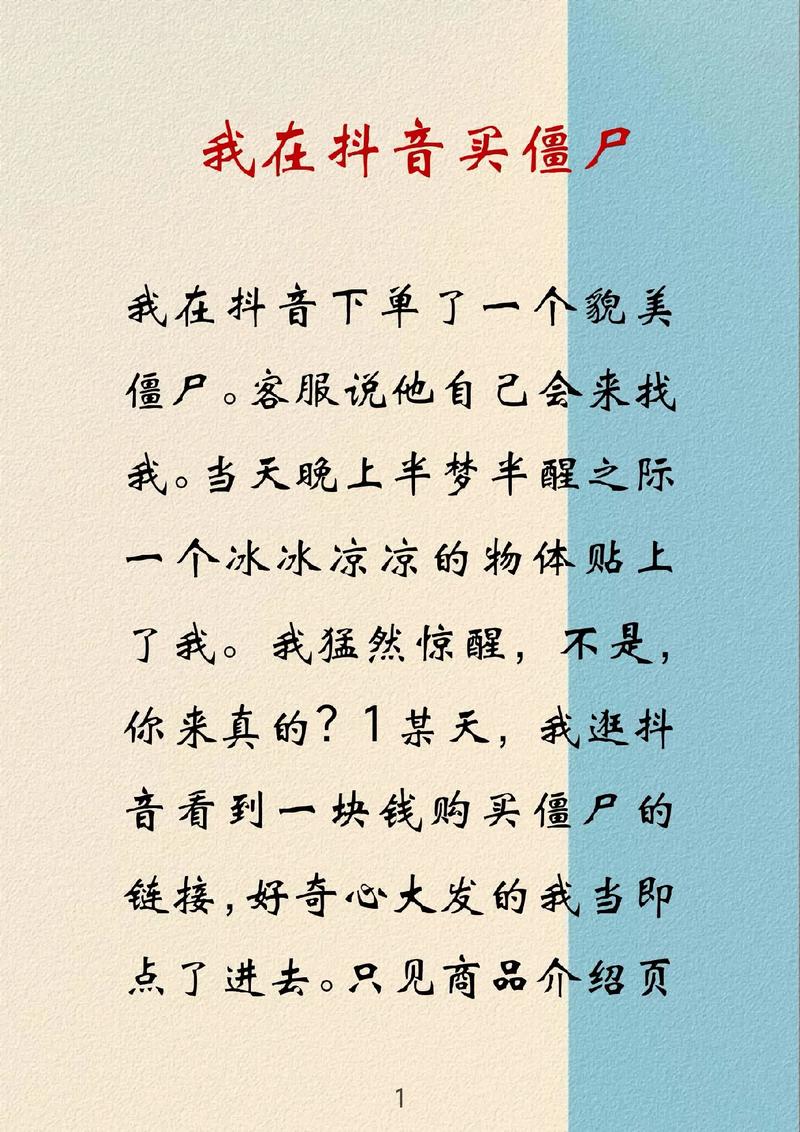 我在抖音买僵尸
我在抖音下单了一个貌美
僵尸。客服说他自己会来找
我。当天晚上半梦半醒之际
一个冰冰凉凉的物体贴上
了我。我猛然惊醒，不是，
你来真的？1某天，我逛抖
音看到一块钱购买僵尸的
链接，好奇心大发的我当即
点了进去。只见商品介绍页
1